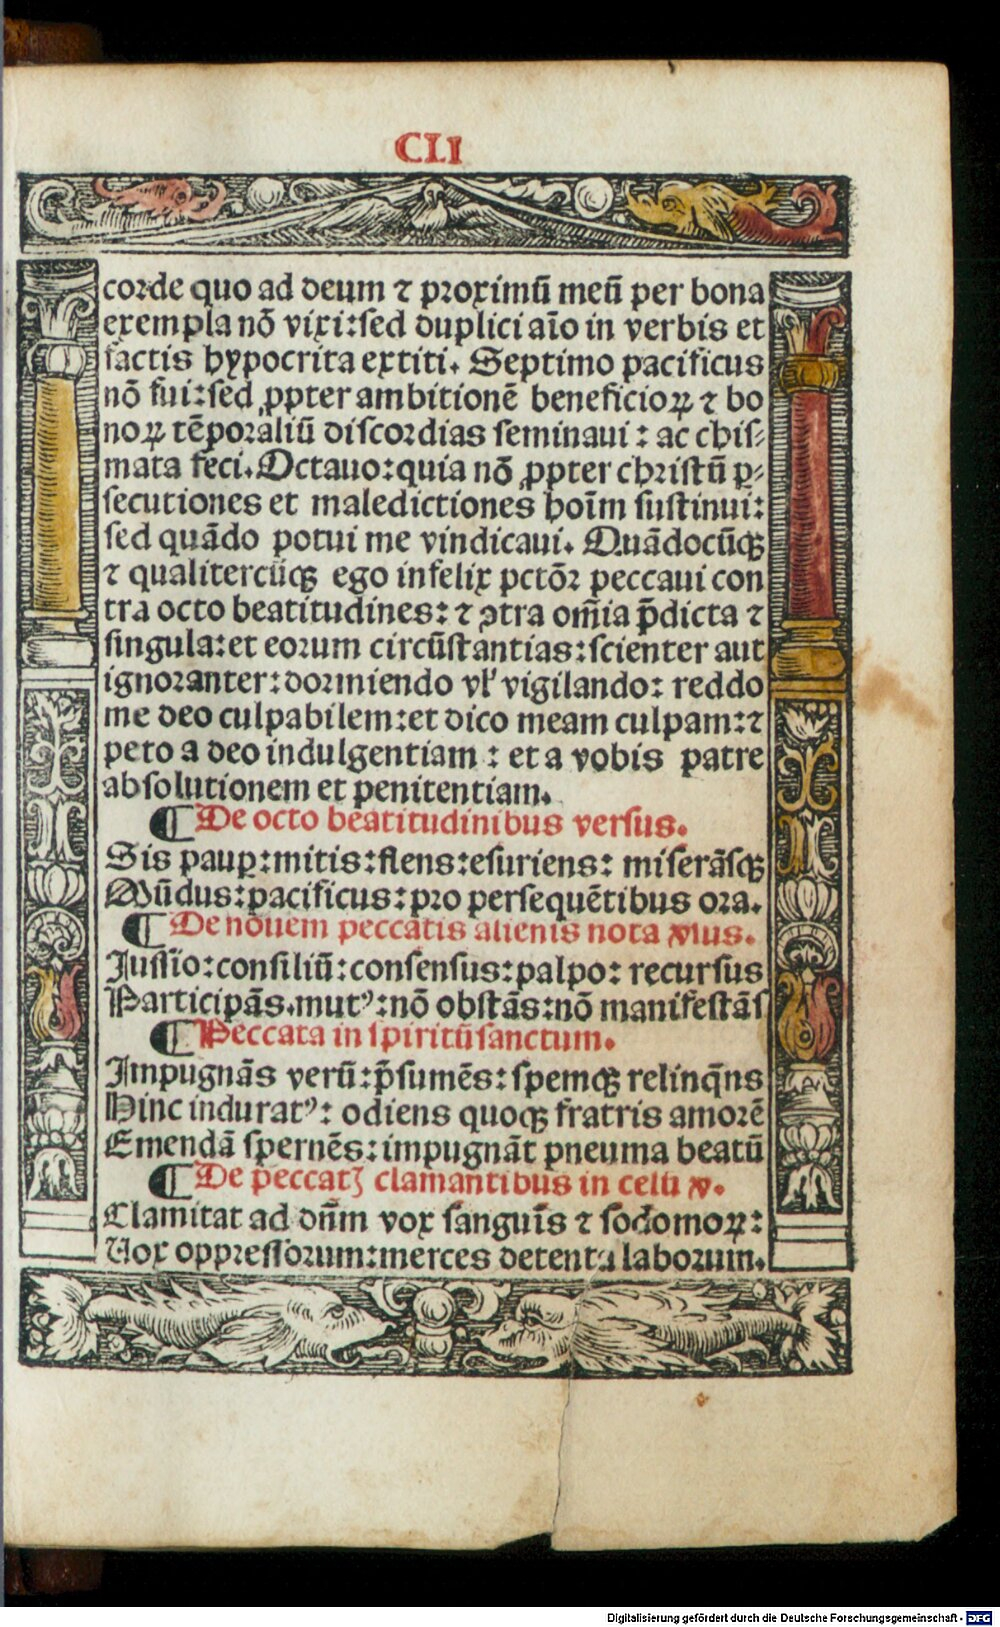 CLI
corde quo ad deum ⁊ proximū meū per bona
exempla nō vixi: sed duplici aīo in verbis et
factis hypocrita extiti. Septimo pacificus
nō fui: sed ꝓpter ambitionē beneficioꝝ ⁊ bo
noꝝ tēporaliū discordias seminaui: ac chis⸗
mata feci. Octauo: quia nō ꝓpter christū ꝑ⸗
secutiones et maledictiones hoīm sustinui:
sed quādo potui me vindicaui. Quādocūqꝫ
⁊ qualitercūqꝫ ego infelix pctōr peccaui con
tra octo beatitudines: ⁊ ꝯtra om̄ia p̄dicta ⁊
singula: et eorum circūstantias: scienter aut
ignoranter: dormiendo vl' vigilando: reddo
me deo culpabilem: et dico meam culpam: ⁊
peto a deo indulgentiam: et a vobis patre
absolutionem et penitentiam.
¶ De octo beatitudinibus versus.
Sis pauꝑ: mitis: flens: esuriens: miserāsqꝫ
Mūdus: pacificus: pro persequētibus ora.
¶ De nouem peccatis alienis nota xlus.
Jussio: consiliū: consensus: palpo: recursus
Participās. mutꝰ: nō obstās: nō manifestās
¶ Peccata in spiritū sanctum.
Impugnās verū: p̄sumēs: spemqꝫ relinq̄ns
Hinc induratꝰ: odiens quoqꝫ fratris amorē
Emendā spernēs: impugnāt pneuma beatū
¶ De peccatꝭ clamantibus in celū v.
Clamitat ad dn̄m vox sanguīs ⁊ sodomoꝝ:
Vox oppressorum: merces detenta laborum.
Digitalisierung gefördert durch die Deutsche Forschungsgemeinschaft - DFG